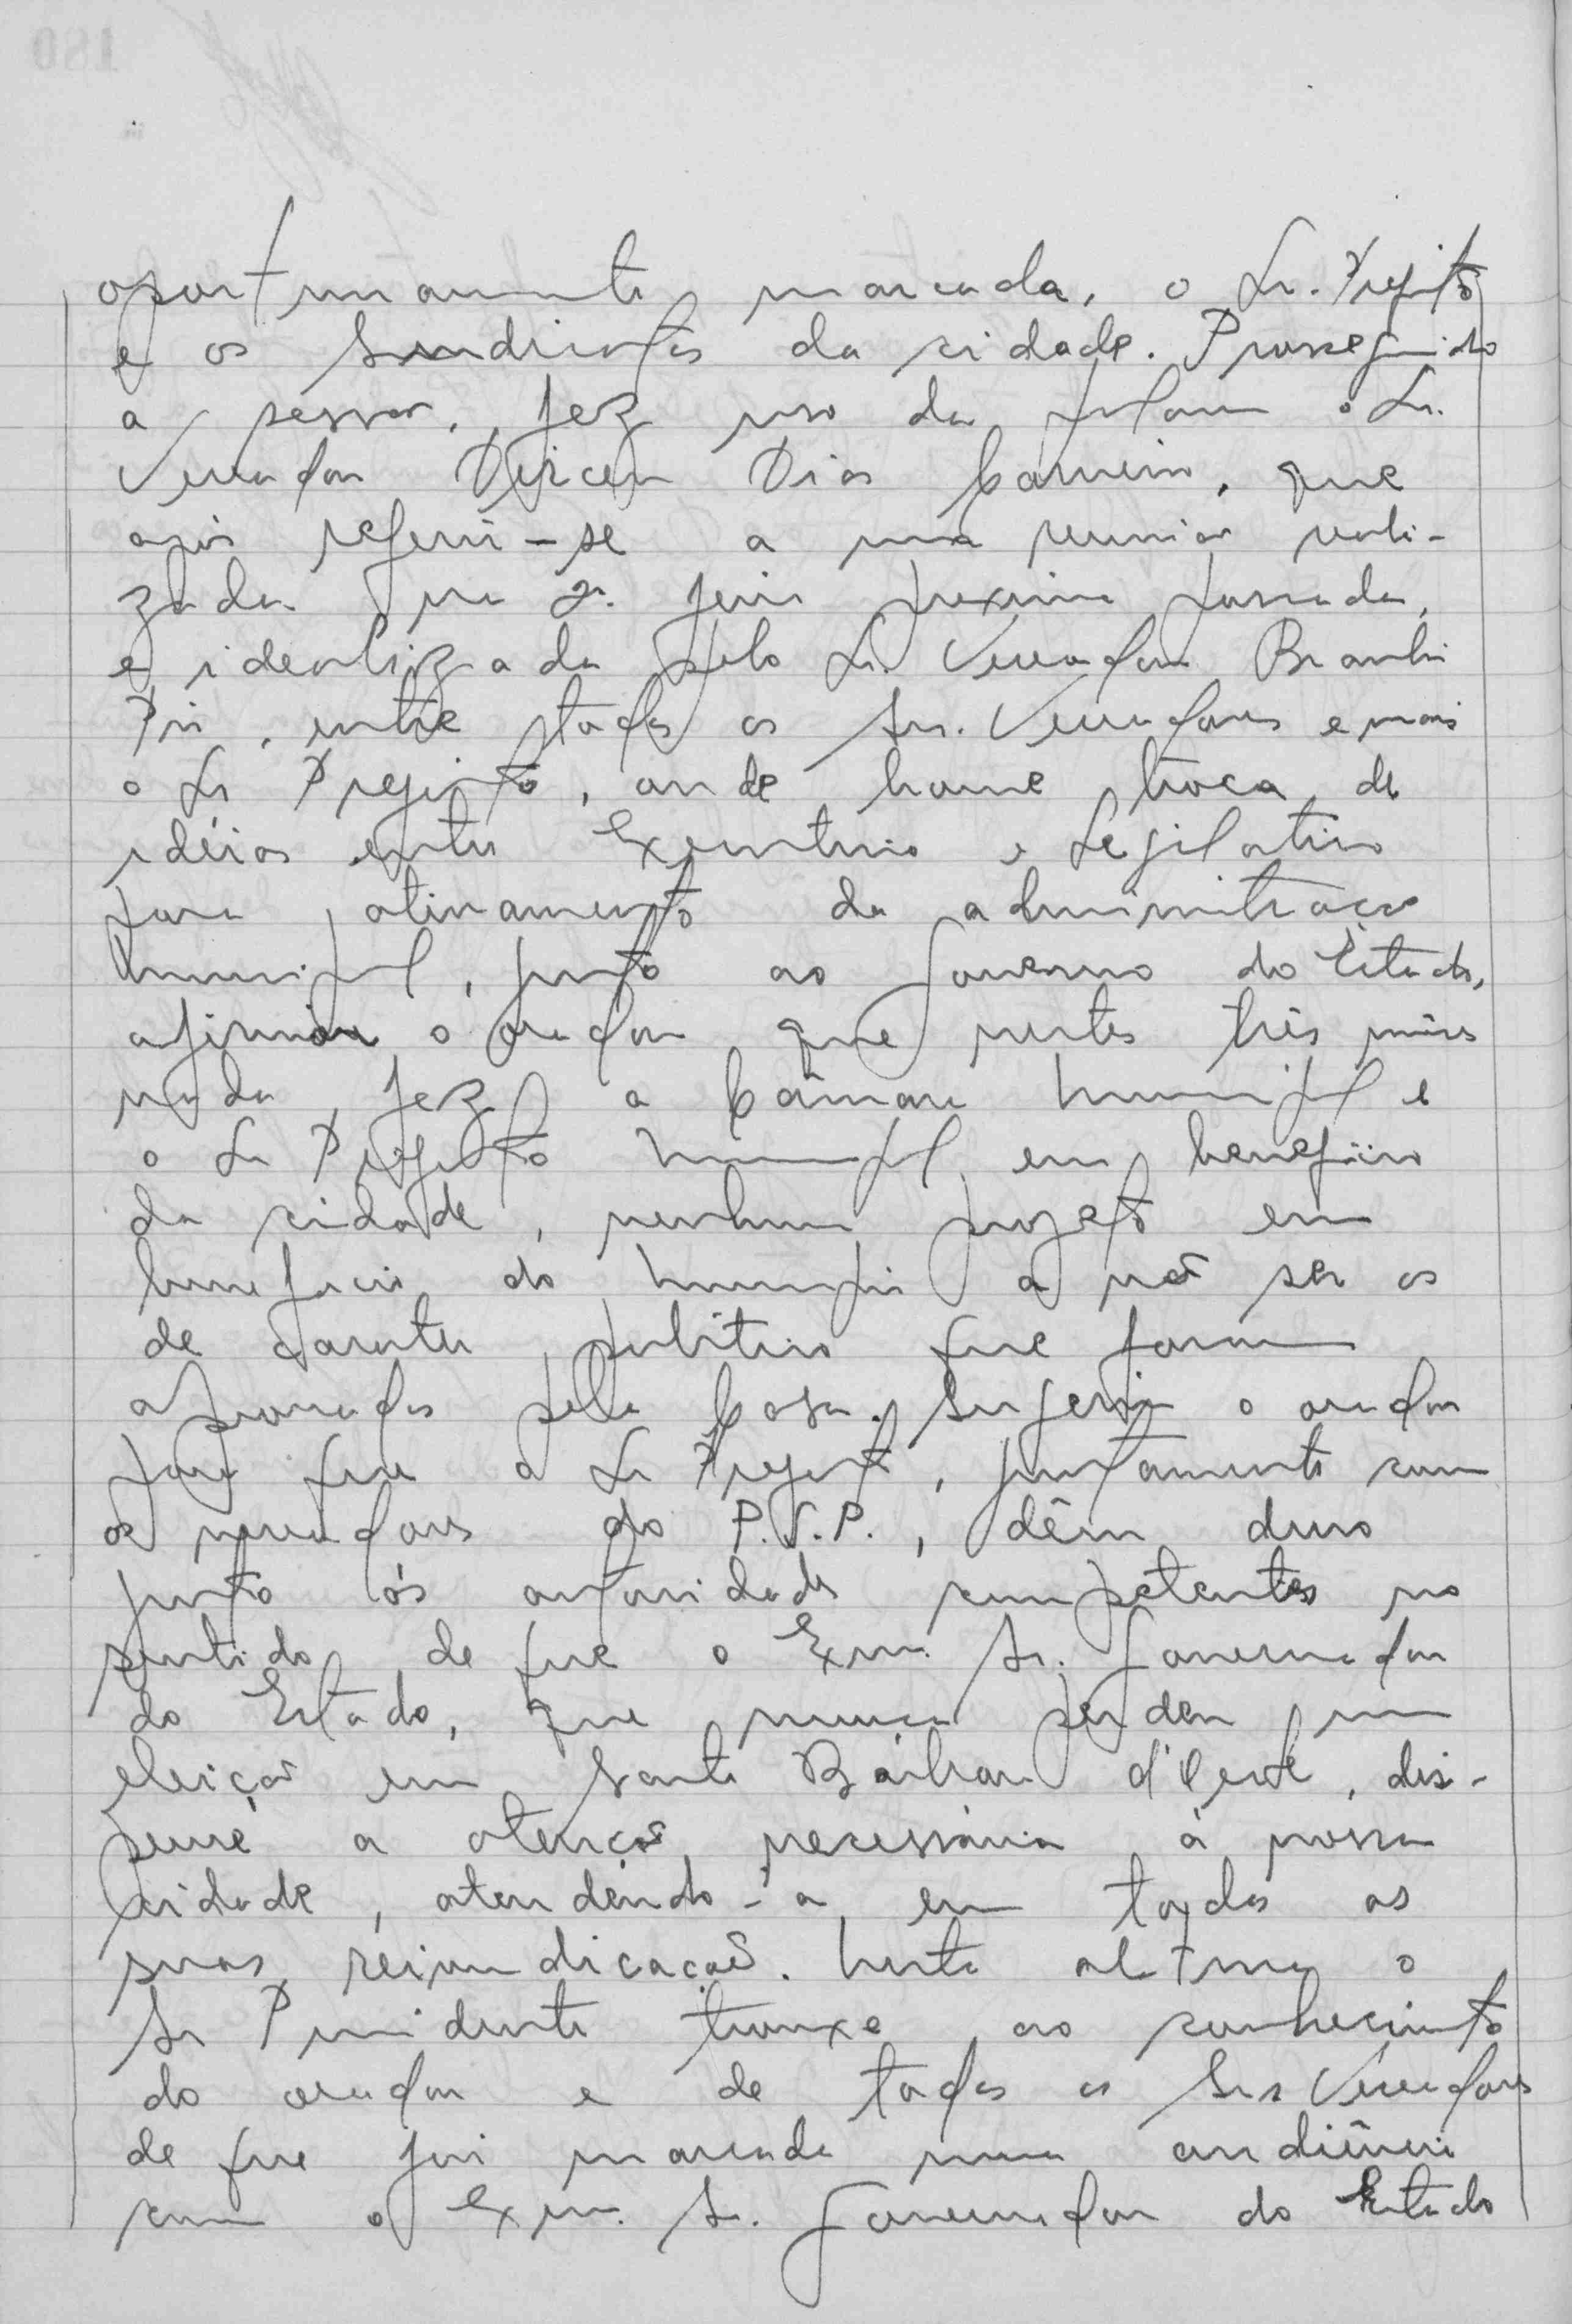 oportunamente marcada, o Sr. Prefeito
e os sindicatos da cidade. Prosseguindo
a sessão, fez uso da palavra o Sr.
Vereador Dirceu Dias Carneiro, que
após referir-se a uma reunião reali-
zada na 2a. feira proxima passada,
e idealizada pelo Sr. Vereador
entre todos os Srs. Vereadores e mais
o Sr Prefeito, onde houve troca de
idéias entre Executivo e Legislativo
para da administração
Municipal, junto ao Governo do Estado,
afirmou o orador que nestes três mêses
nada fez a Câmara Municipal e
o Sr Prefeito Municipal em beneficio
da cidade, nenhum projeto em
beneficio do municipio a não ser os
de carater politico que foram
aprovados pela Casa. Sugeriu o orador
para que o Sr Prefeito, juntamente com
os vereadores do P.S.P., dêm duro
junto ás autoridades competentes no
sentido de que o Exmo. Sr. Governador
do Estado, que nunca perdeu uma
eleição em Santa Bárbara d'Oeste, dis-
pense a atenção necessária á nossa
cidade, atendendo-a em todas as
suas reivindicações. Nesta altura o
Sr Presidente trouxe ao conhecimento
do orador e de todos os Srs Vereadores
de que foi marcada uma audiência
com o Exmo. Sr. Governador do Estado